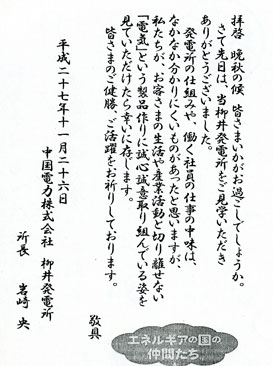 拝啓 晩秋の候 皆さまいかがお過ごしでしょうか。
さて先日は、当柳井発電所をご見学いただき
ありがとうございました。
発電所の仕組みや、働く社員の仕事の中味は、
なかなか分かりにくいものがあったと思いますが、
私たちが、お客さまの生活や産業活動と切り離せない
「電気」という製品作りに誠心誠意取り組んでいる姿を
見ていただけたら幸いに存じます。
皆さまのご健勝、ご活躍をお祈りしております。
敬具
平成二十七年十一月二十六日
中国電力株式会社 柳井発電所
所長 岩崎 央
エネルギアの国の
仲間たち